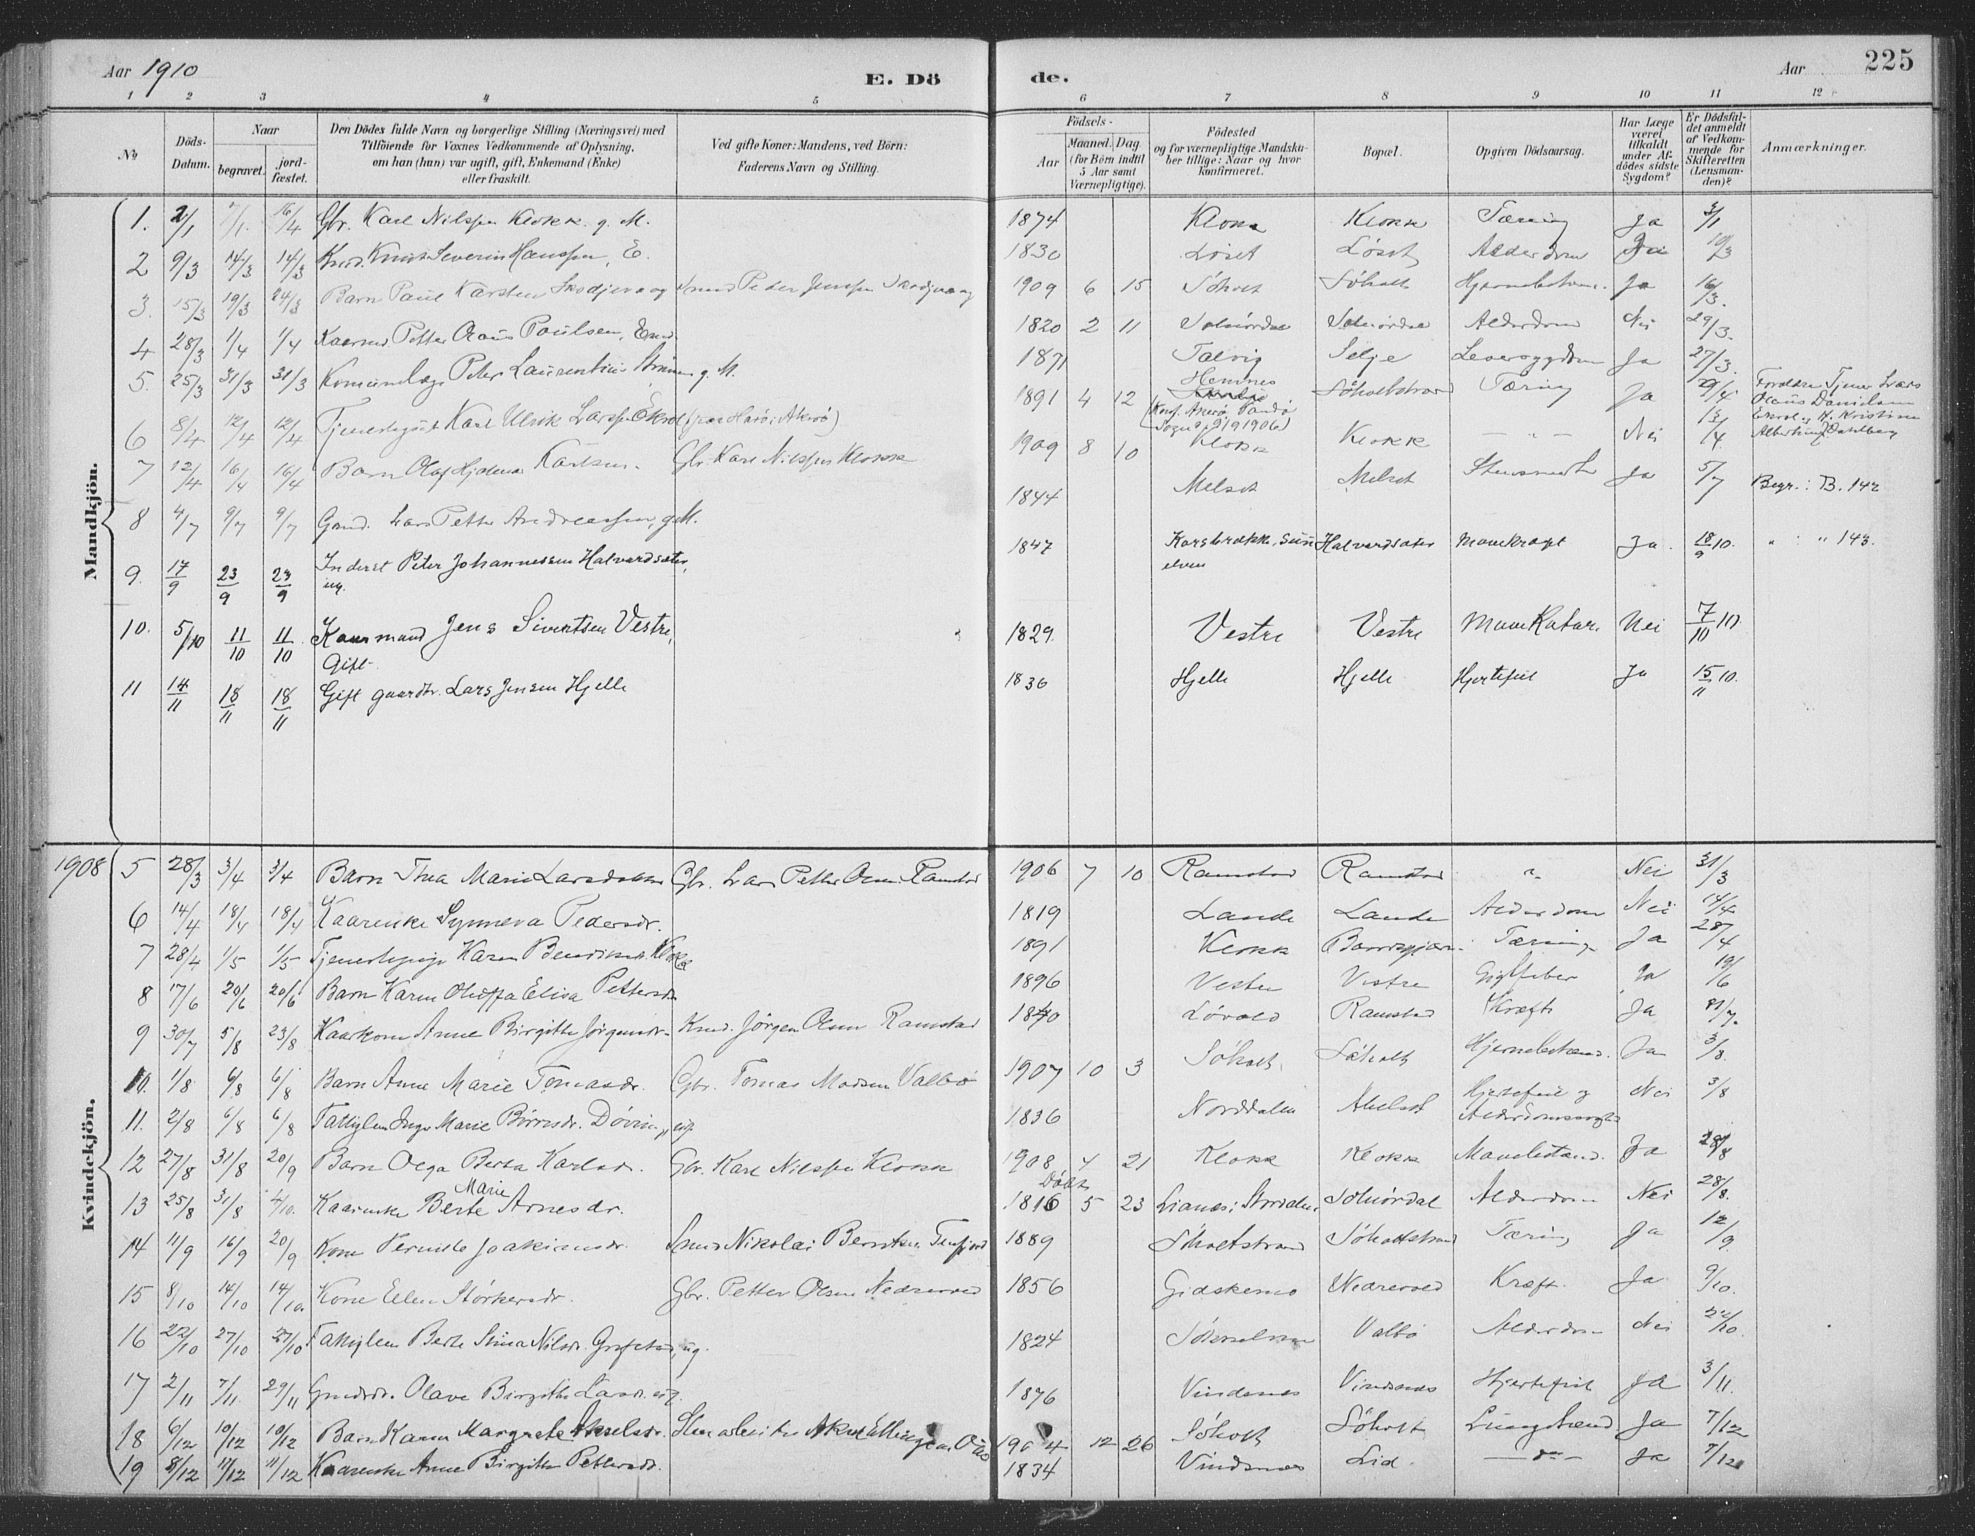 Aar 1910
E. Dö
de.
Aar
225
1 2 3 4 5 6 7 8 9 10 11 12
No
Döds-Datum.
Naar
begravet.
jord-fæstet.
Den Dödes fulde Navn og borgerlige Stilling (Næringsvei) med
Tilföiende for Voxnes Vedkommende af Oplysning,
om han (hun) var ugift, gift, Enkemand (Enke)
eller fraskilt.
Ved gifte Koner: Mandens, ved Börn:
Faderens Navn og Stilling.
Födsels-
Aar
Maaned. Dag
(for Börn indtil
5 Aar samt
Værnepligtige).
Födested
og for værnepligtige Mandsku-
ber tillige: Naar og hvor
Konfirmeret.
Bopæl.
Opgiven Dödsaarsag.
Har Læge
været
tilkaldt
under Af-
dödes sidste
Sygdom?
Er Dödsfal-
det anmeldt
af Vedkom-
mende for
Skifteretten
(Lensman-
den)?
Anmærkninger.
Mandkjön.
1. 2/1 7/1 16/4 Gbr. Karl Nilssen Klokk. g. M. 1874 Klokk Klokk Tæring Ja 3/1
2 9/3 14/3 14/3 Knud Severin Hanssen, E. 1830 Løset Løset Alderdom 10/3
3. 15/3 19/3 24/3 Barn Paul Karsten Skodjevaag Peder Jenssen Skodjevaag 1909 6 15 Søholt Søholt Ja 16/3.
4 28/3 1/4 1/4 Kaarmd Petter Olaus Paulsen, Emd. 1820 2 11 Solnørdal Solnørdal Alderdom Nei 29/3.
5. 25/3 31/3 31/3 Peter Laurentius g. M. 1871 Talvig Selje Leversygdom Ja 27/3.
6 8/4 12/4 12/4 Tjenestegut Karl Ulrik Larssen Ekrol 1891 4 12 Hennes Søholtstrand Tæring Ja
Forældre Tjener Lars
Olaus Danielsen
Dahlberg
7 12/4 16/4 16/4 Barn Olaf Hjalmar Karlsen. Gbr. Karl Nilssen Klokk 1909 8 10 Klokk Klokk Nei 13/4
8 4/7 9/7 9/7 Gmd. Lars Petter Andreassen, g.M. 1844 Melset Melset Ja 5/7 Begr.: B. 142
9. 17/9 23/9 23/9 Inderst Peter Johannessen Halvardsæter, ug. 1847 Korsbrække, Sunelven Halvardsæter Mavekræft Ja. 18/9 10. " : " 143.
10. 5/10 11/10 11/10 Kaarmand Jens Sivertsen Vestre, Gift. 1829. Vestre Vestre Mavekatar. Nei 7/10 10.
11 14/11 18/11 18/11 Gift gaardbr. Lars Jensen Hjelle 1836 Hjelle Hjelle Hjertefeil Ja 15/11 10.
Kvindekjön.
1908 5 28/3 3/4 3/4 Barn Thea Marie Larsdatter Gbr. Lars Petter Olsen Ramstad 1906 7 10 Ramstad Ramstad " Nei 31/3
6 14/4 18/4 18/4 Kaarenke Synneva Pedersdr. 1819 Lande Lande Alderdom Nei 14/4
7 28/4 1/5 1/5 Tjenestepige Karen Klokk 1891 Klokk Tæring Ja 28/4
8 17/6 20/6 20/6 Barn Karen Oluffa Elisa Pettersdr 1896 Vestre Vestre Gigtfeber Ja 19/6
9 30/7 5/8 23/8 Kaarkone Anne Birgitte Jørgensdr. Kmd. Jørgen Olsen Ramstad 1840 Løvold Ramstad Kræft Ja 31/7.
10. 1/8 6/8 6/8 Barn Anne Marie Tomasdr. Gbr. Tomas Madsen Valbø 1907 10 3 Søholt Søholt Hjernebetænd. Ja 3/8.
11. 2/8 6/8 6/8 Fattiglem Inger Marie Døving, ug. 1836 Norddalen Hjertefeil og Alderdomssvaghed Nei 3/8
12 27/8 31/8 20/9 Barn Olga Berta Karlsdr. Gbr. Karl Nilssen Klokk 1908 4 21 Klokk Klokk Mavebetænd. Ja 28/8
13 25/8 31/8 4/10. Kaarenke Berte Marie Arnesdr. Døbt 1816 5 23 Lianes i Stordalen Solnørdal Alderdom Nei 28/8.
14 11/9 16/9 20/9 Kone Pernille Joakimsdr. Smd Nikolai Berntsen Tenfjord 1889 Søholtstrand Søholtstrand Tæring Ja 12/9.
15 8/10 14/10 14/10 Kone Elen Størkersdr. Gbr. Petter Olsen Nedrevold 1856 Gidskemo Nedrevold Kræft. Ja 9/10.
16 22/10 27/10 27/10 Fattiglem Berte Stina Nilsdr. ug. 1824 Valbø Alderdom Nei 22/10.
17 2/11 7/11 29/11 Gmdsdr. Olave Birgitte Larsdr. ug. 1876 Vindsnes Vindsnes Hjertefeil Ja 3/11.
18 6/12 10/12 10/12 Barn Karen Margrete Akselsdr. Stenarbeider Aksel 1904 12 26 Søholt Søholt Lungebetænd Ja 7/12
19 8/12 11/12 11/12 Kaarenke Anne Birgitte Pettersdr. 1834 Vindsnes Lid. — do — Ja 7/12